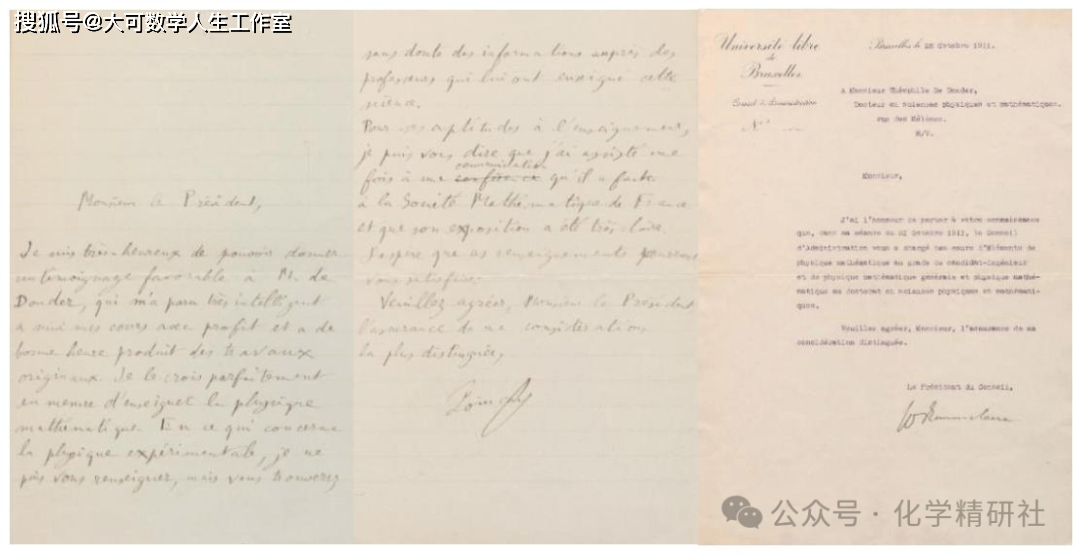 搜狐号@大可数学人生工作室
Monsieur le Président,
Je suis très heureux de pouvoir donner
un témoignage favorable à M. de
Donder, qui m'a paru très intelligent
a suivi mes cours avec profit et a de
bonne heure produit des travaux
originaux. Je le crois parfaitement
en mesure d'enseigner la physique
mathématique. En ce qui concerne
la physique expérimentale, je ne
puis vous renseigner, mais vous trouverez
sans doute des informations auprès des
professeurs qui lui ont enseigné cette
science.
Pour ses aptitudes à l'enseignement,
je puis vous dire que j'ai assisté une
communication
fois à une conférence qu'il a faite
à la Société Mathématique de France
et que son exposition a été très claire.
J'espère que ces renseignements pourront
vous satisfaire.
Veuillez agréer, Monsieur le Président
l'assurance de ma considération
la plus distinguée,
Poincaré
Université libre
de
Bruxelles
Conseil d'Administration
N°
Bruxelles le 25 Octobre 1911.
A Monsieur Théophile De Donder,
Docteur en sciences physiques et mathématiques.
rue des Mélèzes.
E/V.
Monsieur,
J'ai l'honneur de porter à votre connaissance
que, dans sa séance du 21 Octobre 1911, le Conseil
d'Administration vous a chargé des cours d'Eléments de
physique mathématique au grade de candidat-ingénieur
et de physique mathématique générale et physique mathé-
matique au doctorat en sciences physiques et mathémati-
ques.
Veuillez agréer, Monsieur, l'assurance de ma
considération distinguée.
Le Président du Conseil,
公众号 · 化学精研社